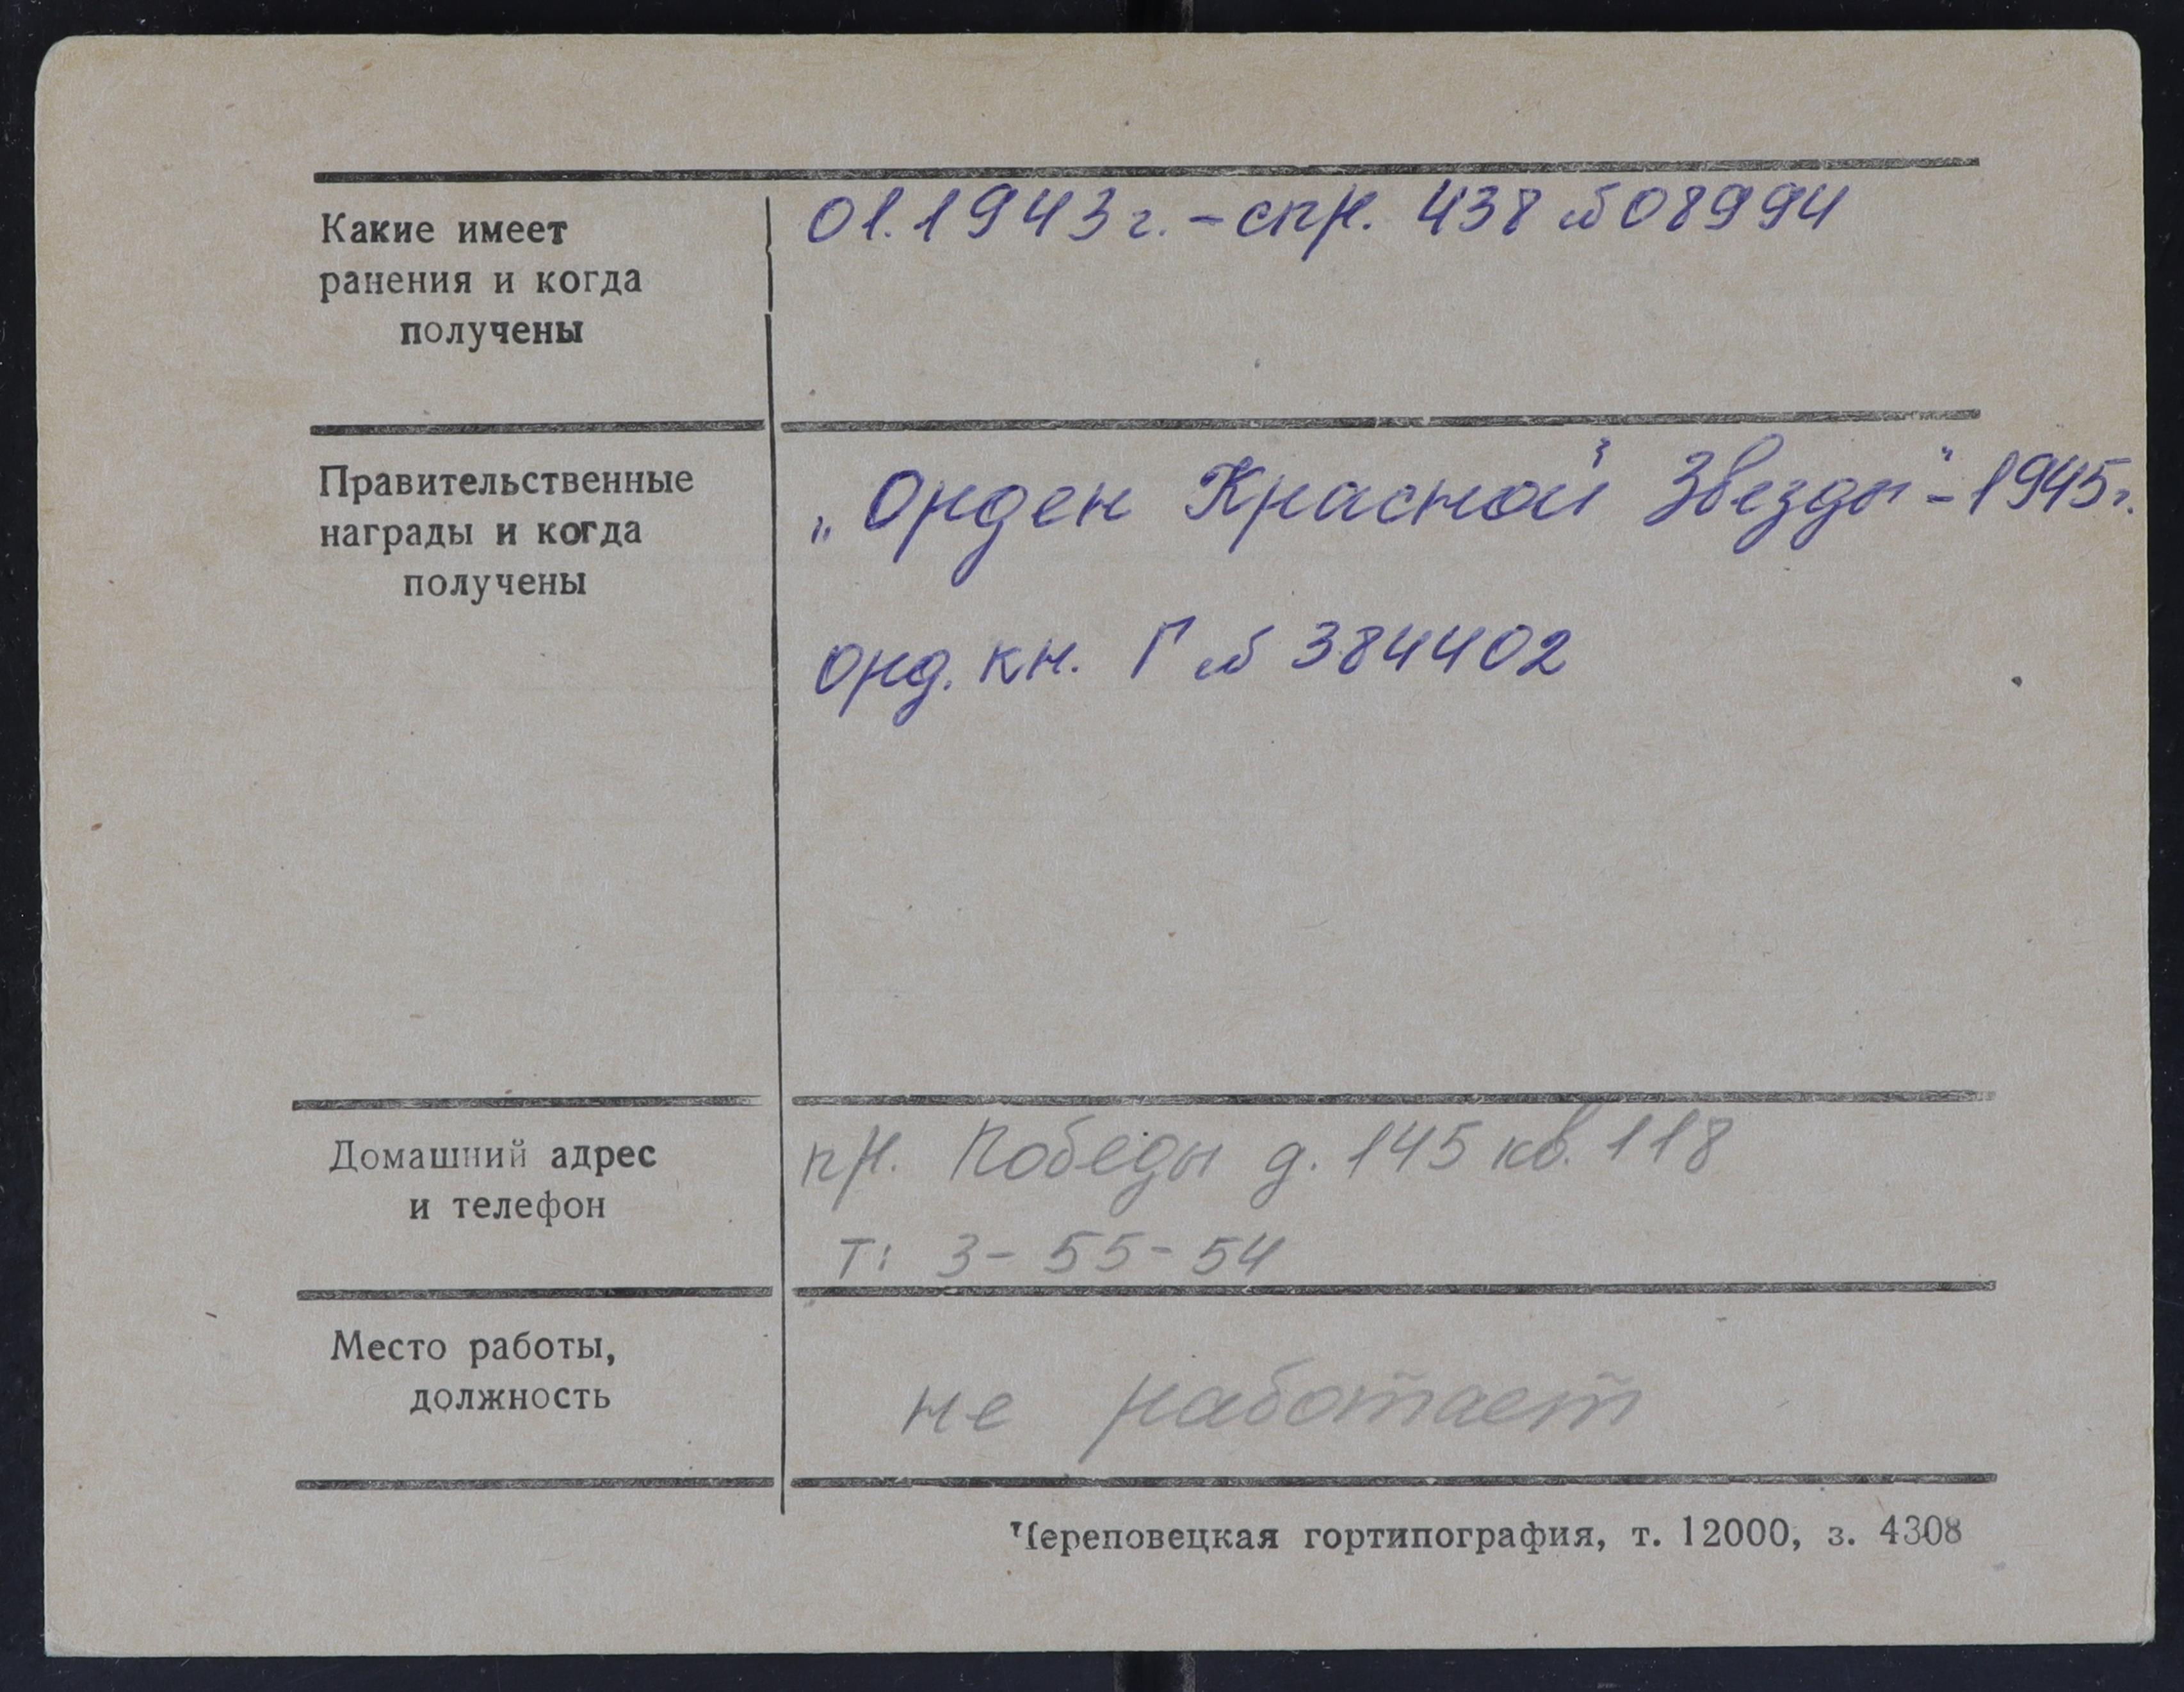 Какие имеет
ранения и когда
получены
01.1943 г. - спр. 438 № 08994
Правительственные
награды и когда
получены
„Орден Красной Звезды" - 1945 г.
орд. кн. Г № 384402
Домашний адрес
и телефон
пр. Победы д. 145 кв. 118
т: 3-55-54
Место работы,
должность
не работает
Череповецкая гортипография, т. 12000, з. 4308